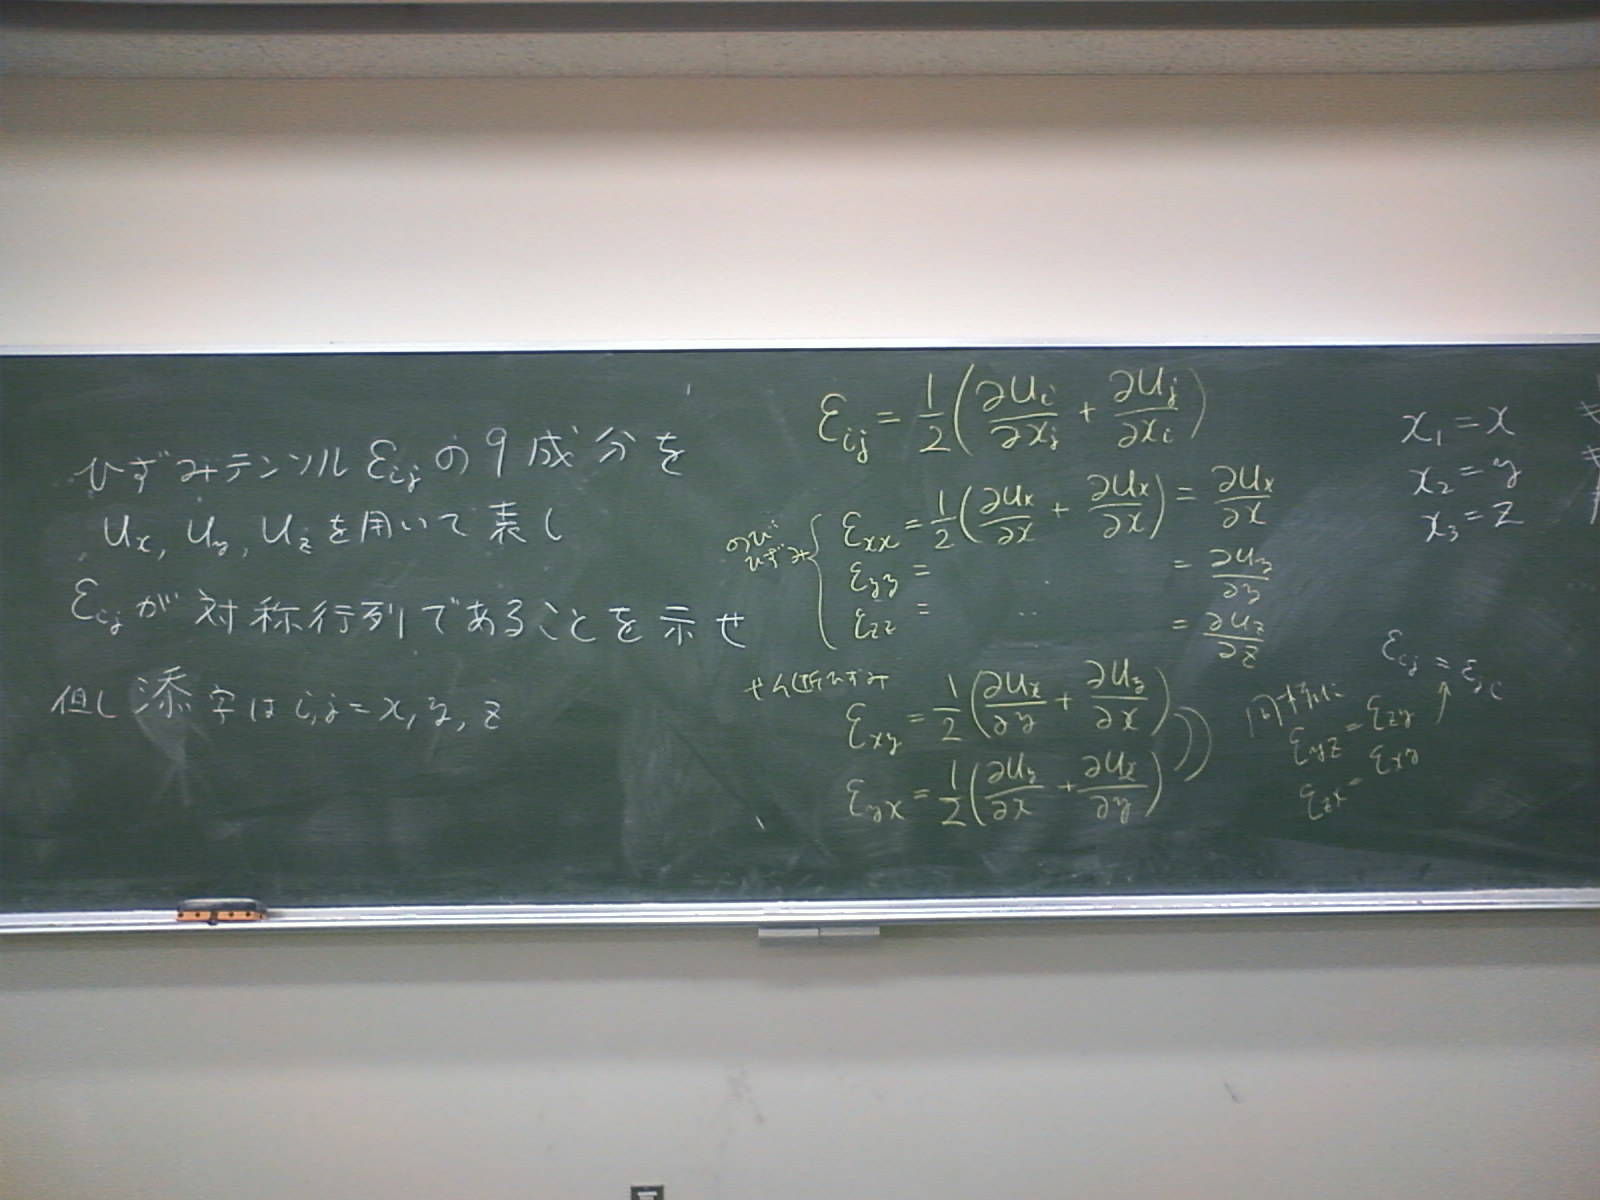 ひずみテンソル εij の9成分を
ux, uy, uz を用いて表し
εij が対称行列であることを示せ
但し添字は i,j = x, y, z
εij = 1/2 (∂ui/∂xj + ∂uj/∂xi)
のび
ひずみ
εxx = 1/2 (∂ux/∂x + ∂ux/∂x) = ∂ux/∂x
εyy = ‥ = ∂uy/∂y
εzz = ‥ = ∂uz/∂z
せん断ひずみ
εxy = 1/2 (∂ux/∂y + ∂uy/∂x)
εyx = 1/2 (∂uy/∂x + ∂ux/∂y)
同様に
εyz = εzy
εzx = εxz
εij = εji
x1 = x
x2 = y
x3 = z